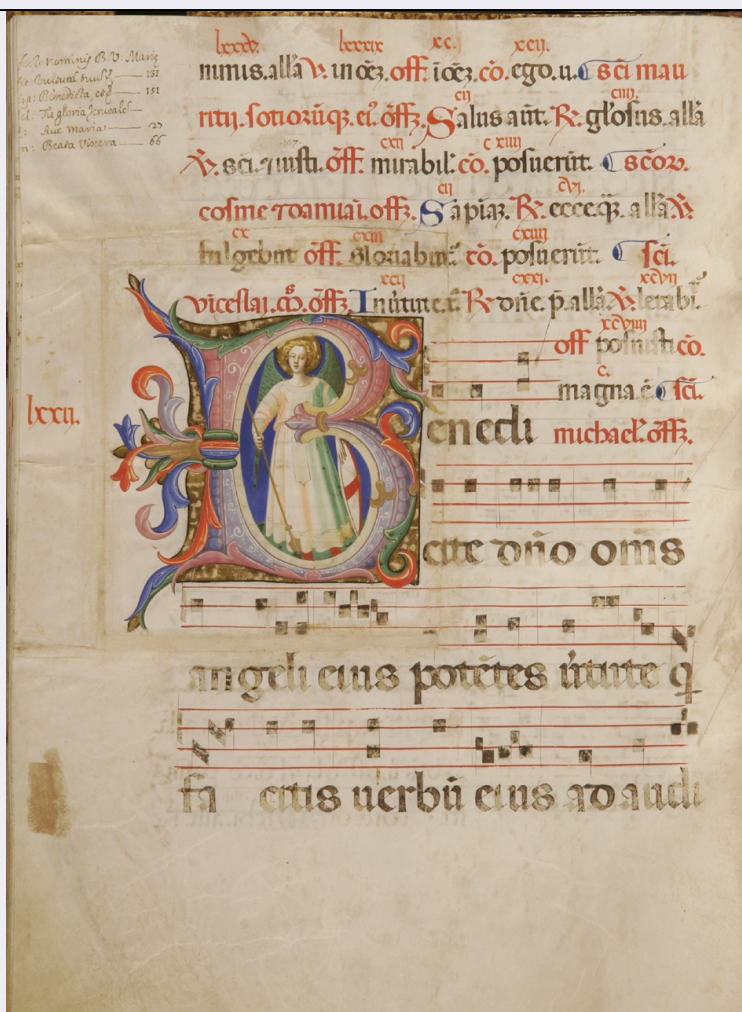 B. V. Mariæ
151
Benedicta es 151
Tu gloria Jerusalē
Aue maria 27
Beata Viscera 66
lxxxv. lxxxix xc. xcii.
minus. allā V. in oēz. off. ioēz. cō. ego. u. sci mau
cii ciiii.
ritii. sotiorūqz. ei'. offz. Salus aūt. R. gl'osus. allā
cxii cxiiii
V. sci. iusti. off. mirabil'. cō. posuerūt. scōꝝ.
cii cvi.
cosme ⁊ damiāi. offz. Sapiāz. R. ecce q̄z. allā V.
cx cxiii cxiiii
fulgebūt off. gloriabūt. cō. posuerūt. sci.
xcii cxxi. xcvii
vīceslai. offz. In ūtute. R. dn̄e. p̄. allā V. letabi'.
xcviiii
off posuisti cō.
c.
magna ē. sci.
lxxii.
Benedi michael'. offz.
cite dn̄o om̄s
angeli eius potētes ūtute q̄
facitis uerbū eius ad audi